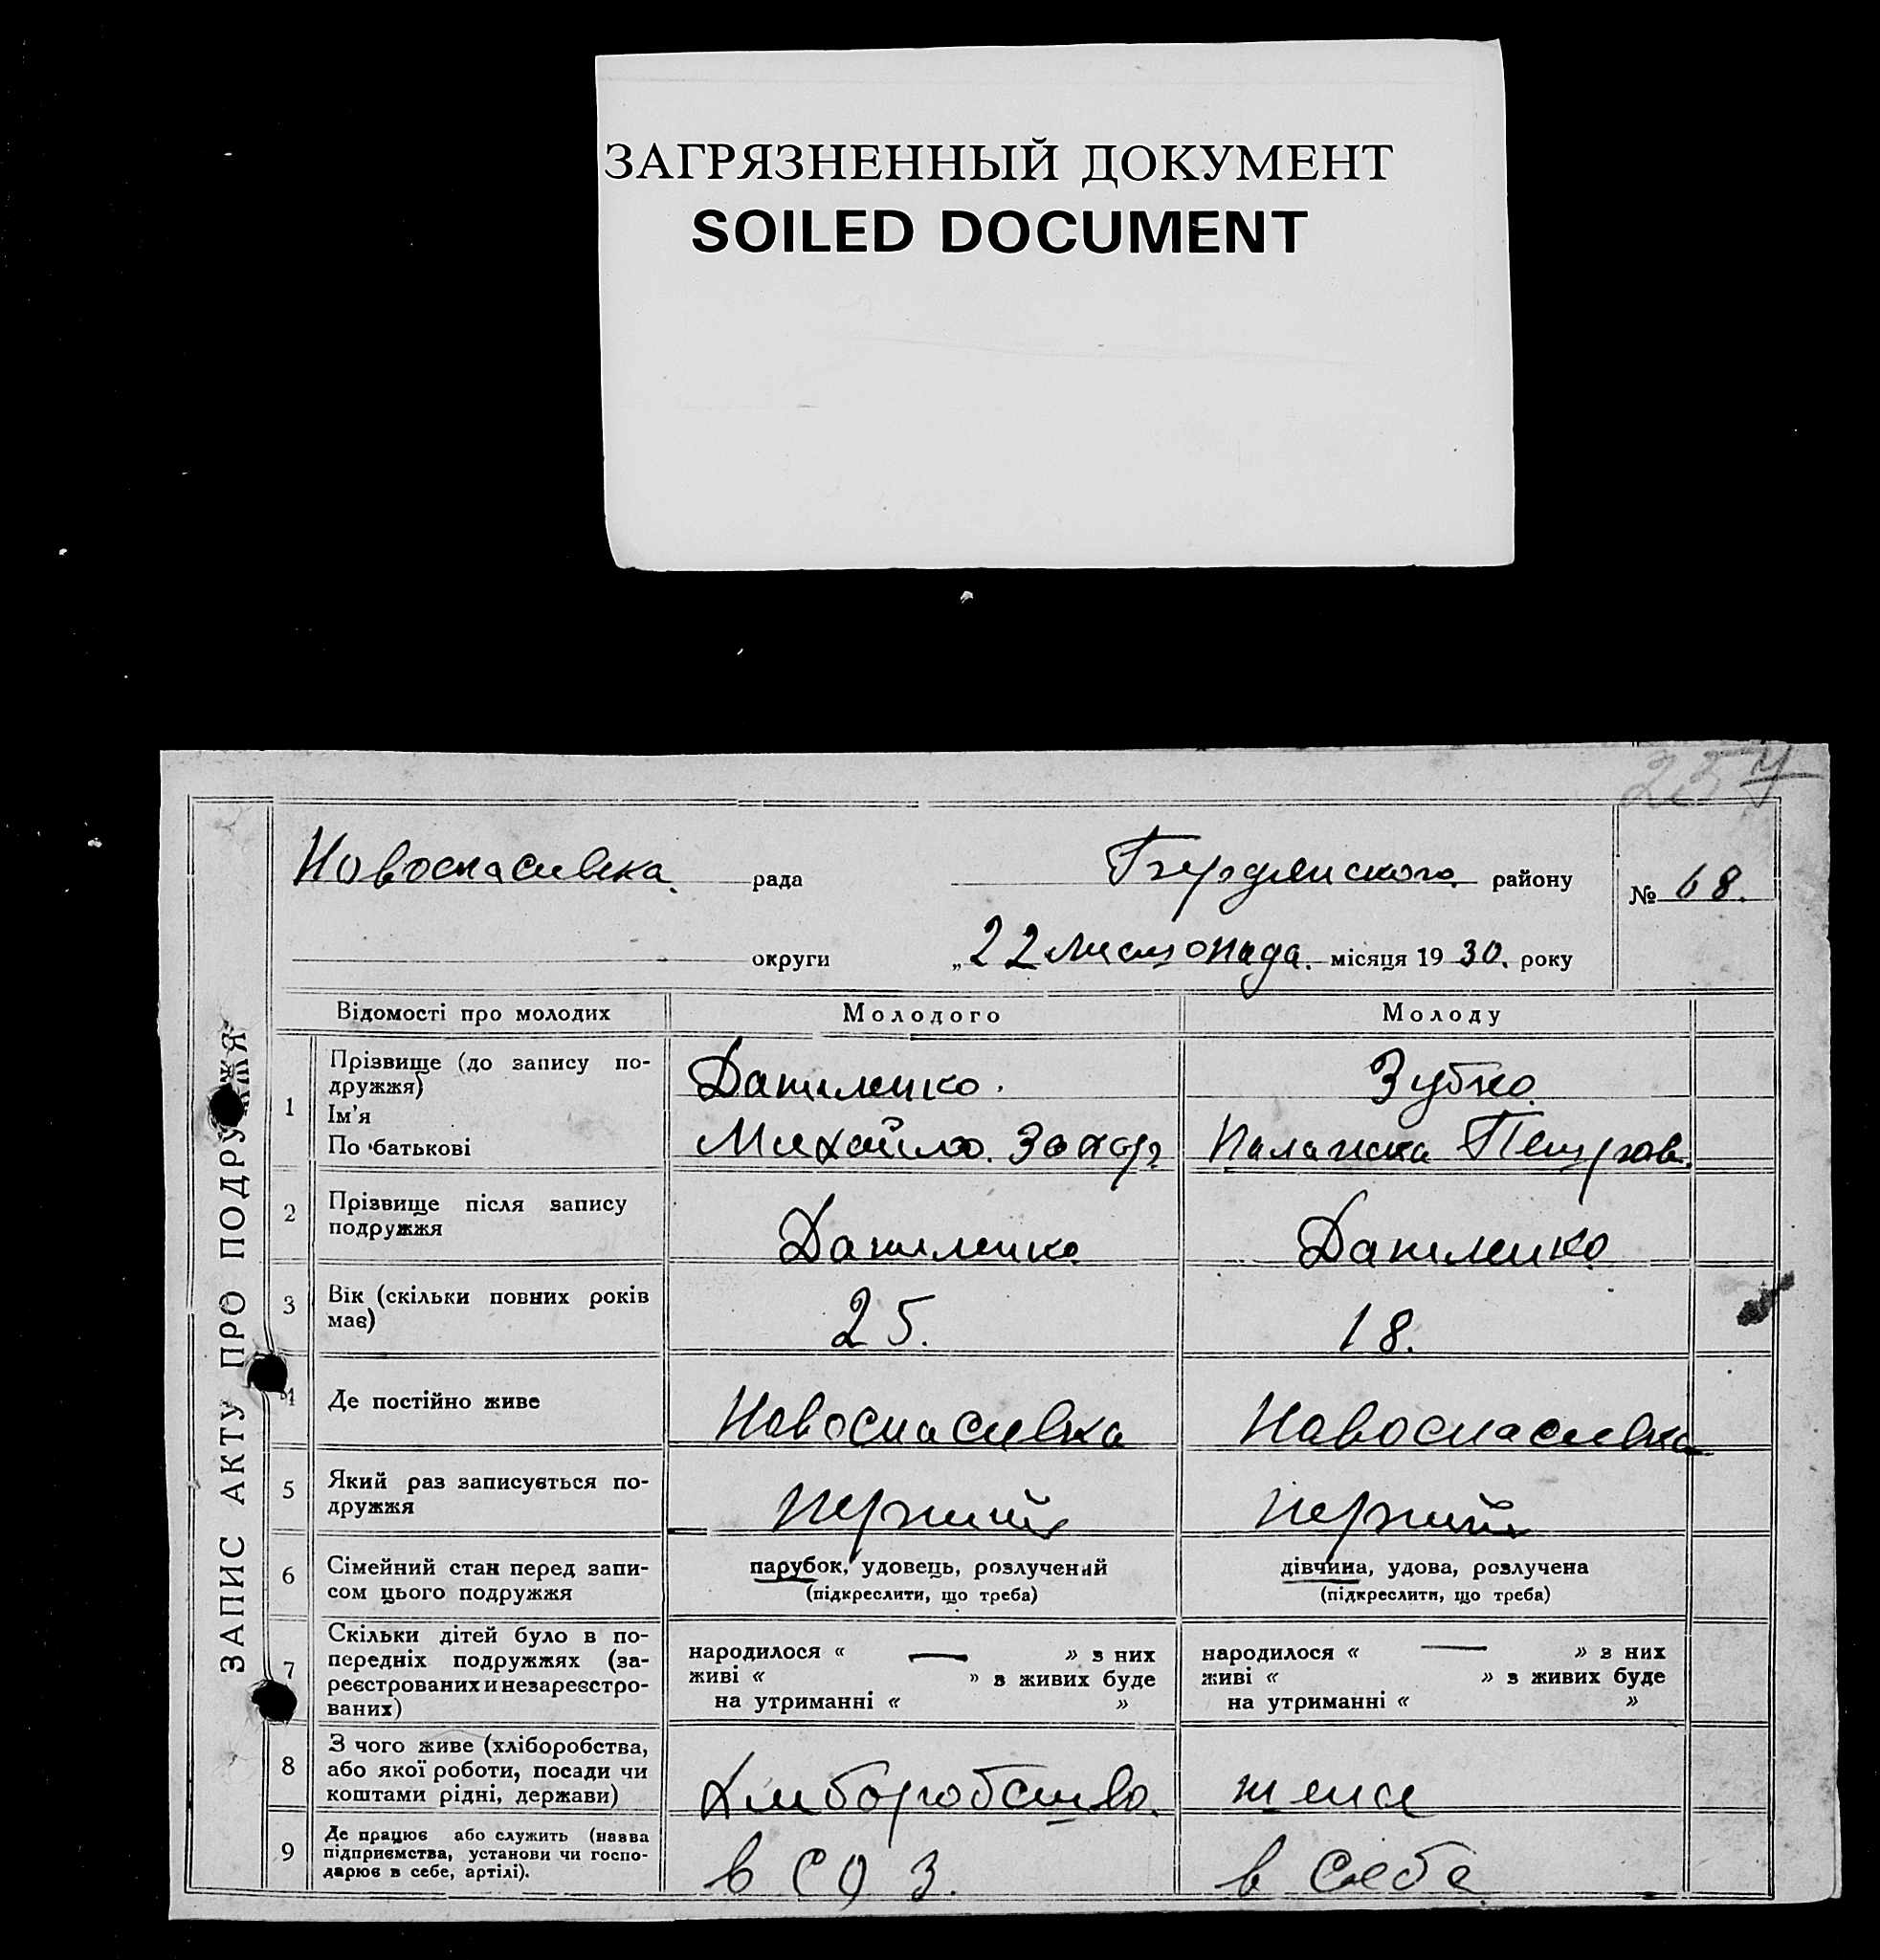 ЗАГРЯЗНЕННЫЙ ДОКУМЕНТ
SOILED DOCUMENT
257
Новоспасивка. рада Бердянского району № 68.
округи „22 листопада. місяця 1930. року
ЗАПИС АКТУ ПРО ПОДРУЖЖЯ
Відомості про молодих Молодого Молоду
1 Прізвище (до запису по-
дружжя) Даниленко. Зубко
Ім'я
По батькові Михайло. Захар Палажка Петров.
2 Прізвище після запису
подружжя Даниленко Даниленко
3 Вік (скільки повних років
має) 25. 18.
4 Де постійно живе Новоспасивка Новоспасивка
5 Який раз записується по-
дружжя перший перший
6 Сімейний стан перед запи-
сом цього подружжя
парубок, удовець, розлучений дівчина, удова, розлучена
(підкреслити, що треба) (підкреслити, що треба)
7 Скільки дітей було в по-
передніх подружжях (за-
реєстрованих и незареєстро-
ваних)
народилося « — » з них народилося « — » з них
живі « » з живих буде живі « » з живих буде
на утриманні « » на утриманні « »
8 З чого живе (хліборобства,
або якої роботи, посади чи
коштами рідні, держави) Хлиборобство. теж
9 Де працює або служить (назва
підприємства, установи чи госпо-
дарює в себе, артілі). в СОЗ. в себе